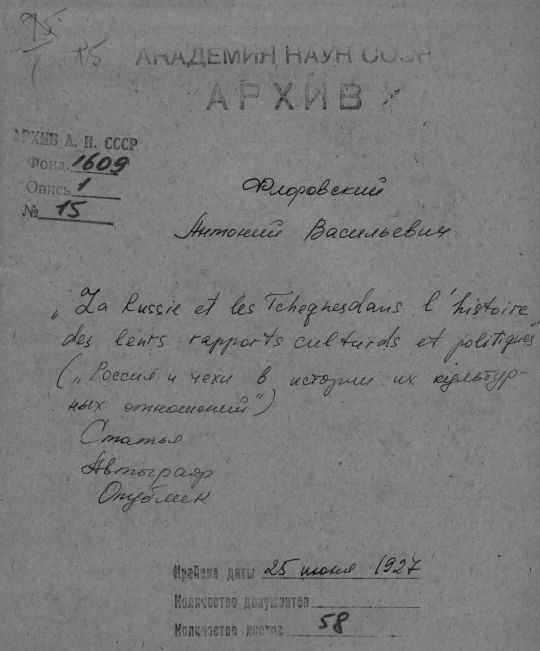 АКАДЕМИЯ НАУК СССР
АРХИВ
АРХИВ А. Н. СССР
Фонд. 1609
Опись 1
№ 15
Флоровский
Антоний Васильевич
„La Russie et les Tcheques dans l'histoire
des leurs rapports culturels et politiques"
(„Россия и чехи в истории их культур-
ных отношений")
Статья
Автограф
Опублик
Крайние даты 25 июня 1927
Количество документов
Количество листов 58